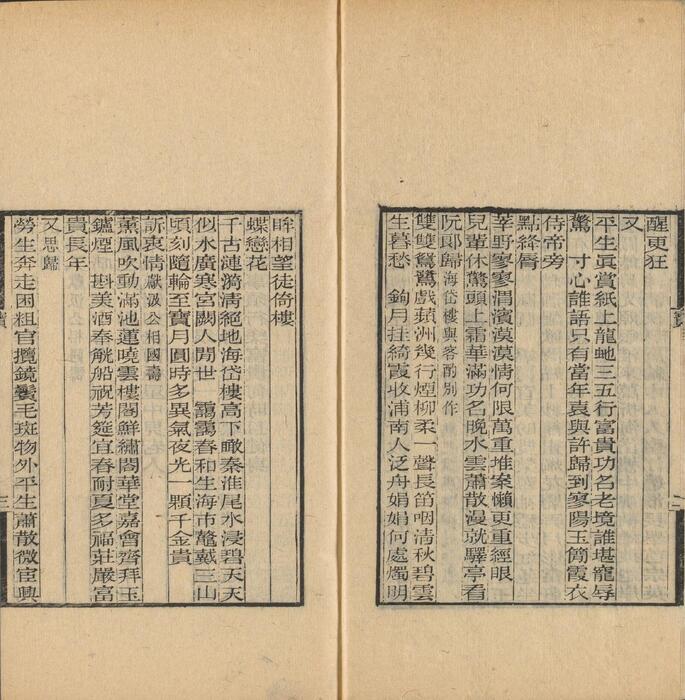 醒更狂
又
平生真賞紙上龍虵三五行富貴功名老境誰堪寵辱
驚　寸心誰語只有當年袁與許歸到寥陽玉簡霞衣
侍帝旁
點絳脣
莘野寥寥渭濱漠漠情何限萬重堆案懶更重經眼
兒輩休驚頭上霜華滿功名晚水雲蕭散漫就驛亭看
阮郞歸海岱樓與客酌別作
雙雙鴛鷺戲蘋洲幾行煙柳柔一聲長笛咽清秋碧雲
生暮愁　鉤月挂綺霞收浦南人泛舟娟娟何處燭明
眸相望徒倚樓
蝶戀花
千古漣漪清絕地海岱樓高下瞰秦淮尾水浸碧天天
似水廣寒宮闕人閒世　靄靄春和生海市鼇戴三山
頃刻隨輪至寶月圓時多異氣夜光一顆千金貴
訴衷情獻汲公相國壽
薰風吹動滿池蓮曉雲樓閣鮮繡閤華堂嘉會齊拜玉
鑪煙　斟美酒奉觥船祝芳筵宜春耐夏多福莊嚴富
貴長年
又思歸
勞生奔走困粗官攬鏡鬢毛斑物外平生蕭散微宦興
二
三